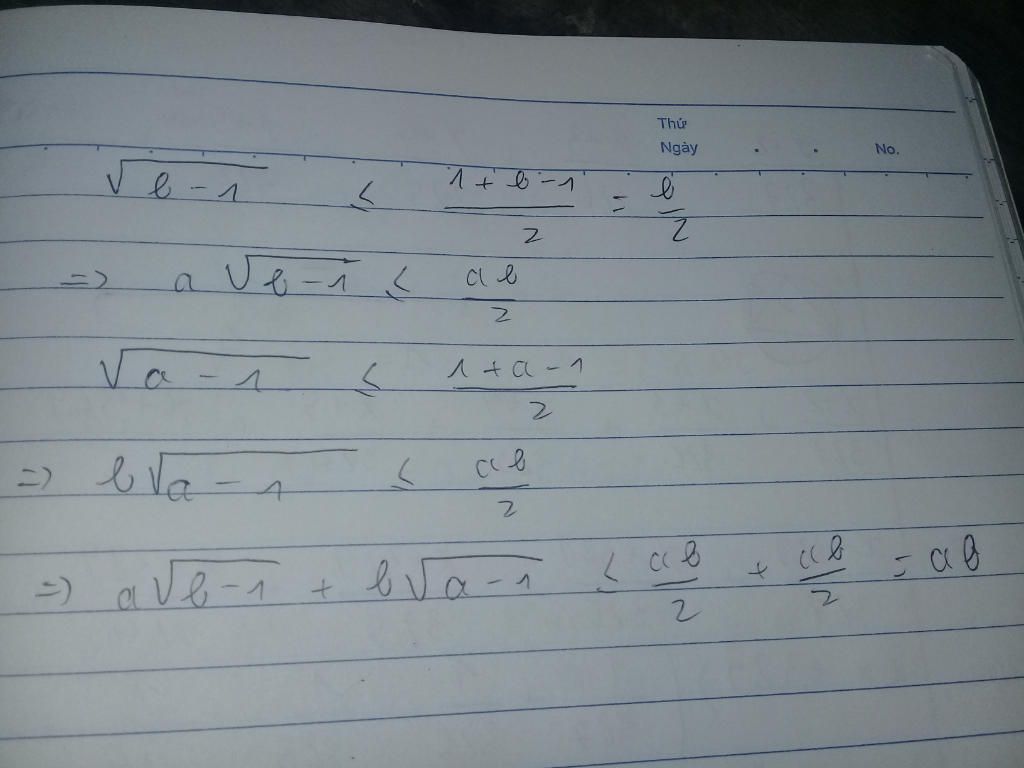 Thứ
Ngày . . No.
√(b-1) ≤ (1+b-1)/2 = b/2
=> a√(b-1) ≤ ab/2
√(a-1) ≤ (1+a-1)/2
=> b√(a-1) ≤ ab/2
=> a√(b-1) + b√(a-1) ≤ ab/2 + ab/2 = ab